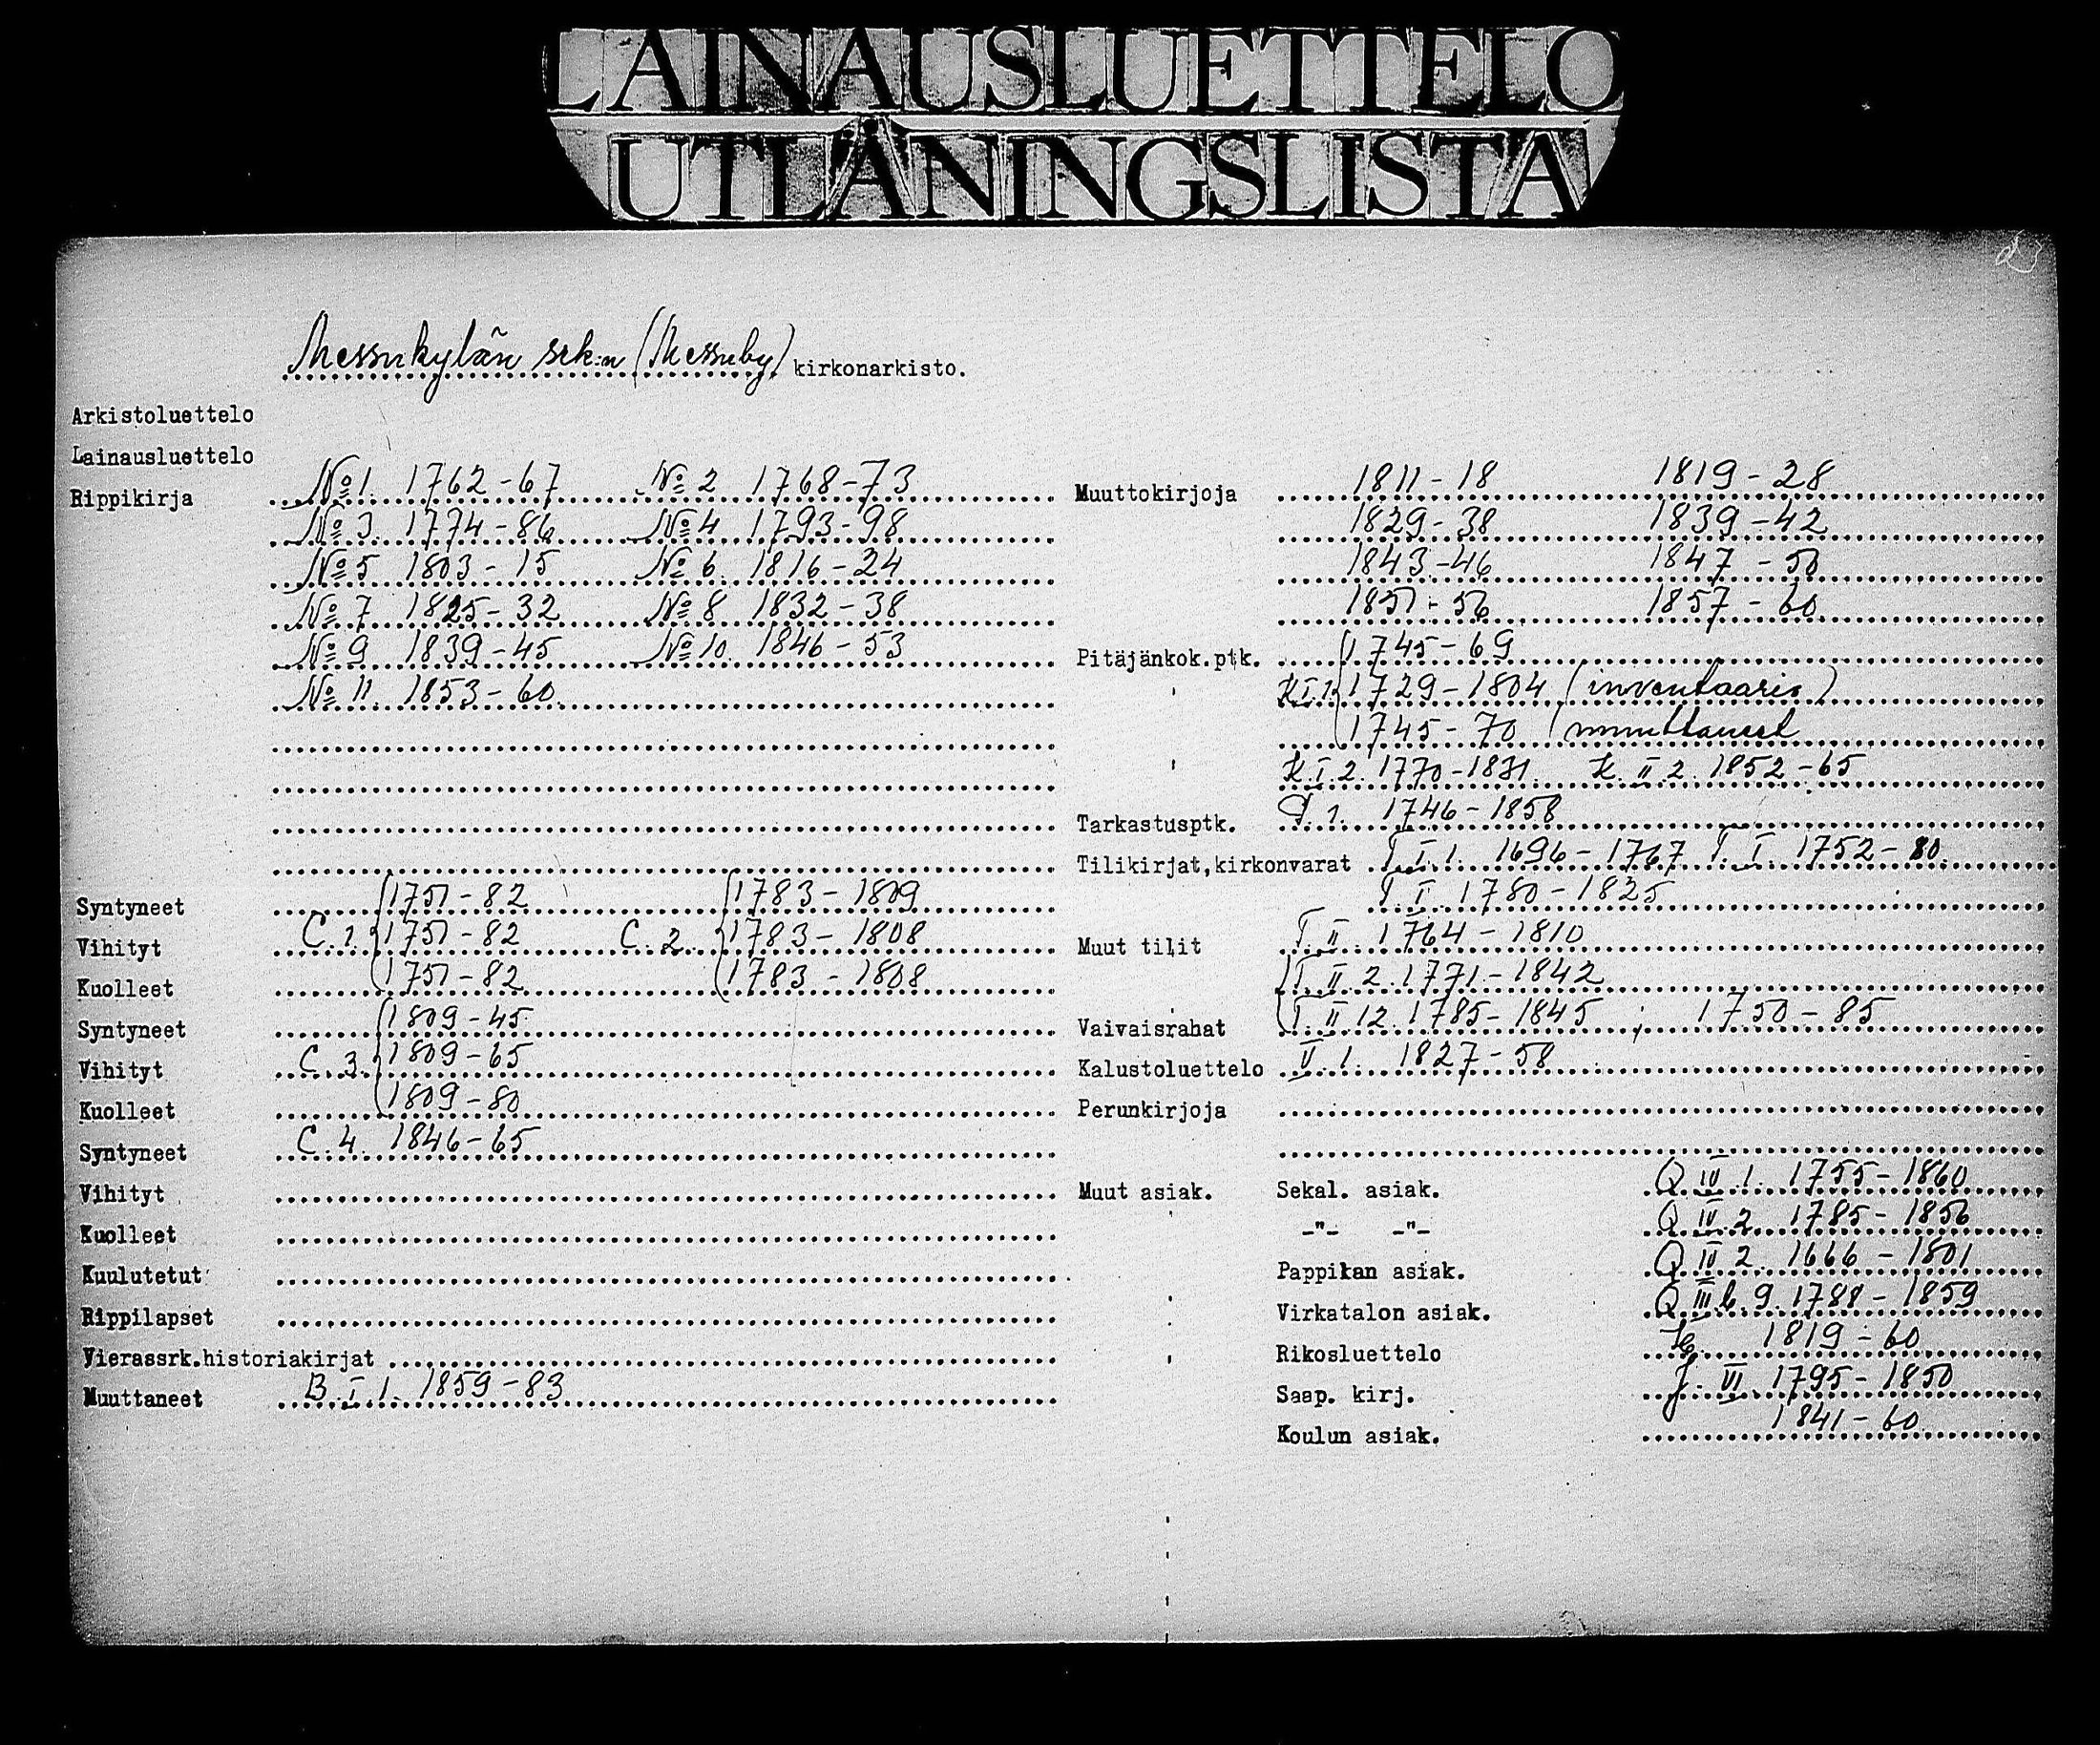 LAINAUSLUETTELO
UTLÅNINGSLISTA
23
Messukylän srk:n (Messuby) kirkonarkisto.
Arkistoluettelo
Lainausluettelo
Rippikirja No 1. 1762-67 No 2 1768-73
No 3 1774-86 No 4 1793-98
No 5 1803-15 No 6 1816-24
No 7 1825-32 No 8 1832-38
No 9 1839-45 No 10. 1846-53
No 11. 1853-60
Syntyneet 1751-82 1783-1809
Vihityt C. 1. 1751-82 C. 2. 1783-1808
Kuolleet 1751-82 1783-1808
Syntyneet 1809-45
Vihityt C. 3. 1809-65
Kuolleet 1809-80
Syntyneet C. 4. 1846-65
Vihityt
Kuolleet
Kuulutetut
Rippilapset
Vierassrk.historiakirjat
Muuttaneet B. I. 1. 1859-83
Muuttokirjoja 1811-18 1819-28
1829-38 1839-42
1843-46 1847-50
1851-56 1857-60
Pitäjänkok.ptk. 1745-69
K.I.1. 1729-1804 (inventaario)
1745-70 (muuttaneet
K. I. 2. 1770-1831. K. II. 2. 1852-65
Tarkastusptk. 1. 1746-1858
Tilikirjat,kirkonvarat T. I. 1. 1696-1767 T. I. 1752-80.
T. I. 1780-1825
Muut tilit T. II. 1764-1810
T. II. 2. 1771-1842
Vaivaisrahat T. II 12. 1785-1845 ; 1750-85
Kalustoluettelo 1. 1827-58
Perunkirjoja
Muut asiak. Sekal. asiak. Q IV. 1. 1755-1860
-"- -"- Q IV. 2. 1785-1856
Pappilan asiak. Q II 2. 1666-1801
Virkatalon asiak. Q III b. 9. 1788-1859
Rikosluettelo 1819-60
Saap. kirj. J. VI. 1795-1850
Koulun asiak. 1841-60